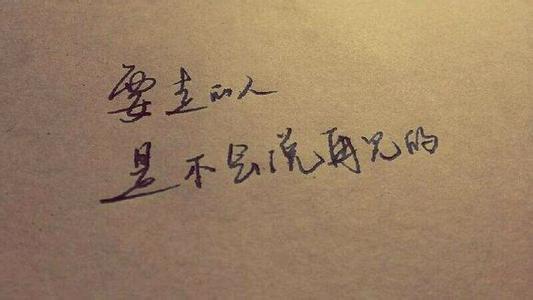 要走的人
是不会说再见的